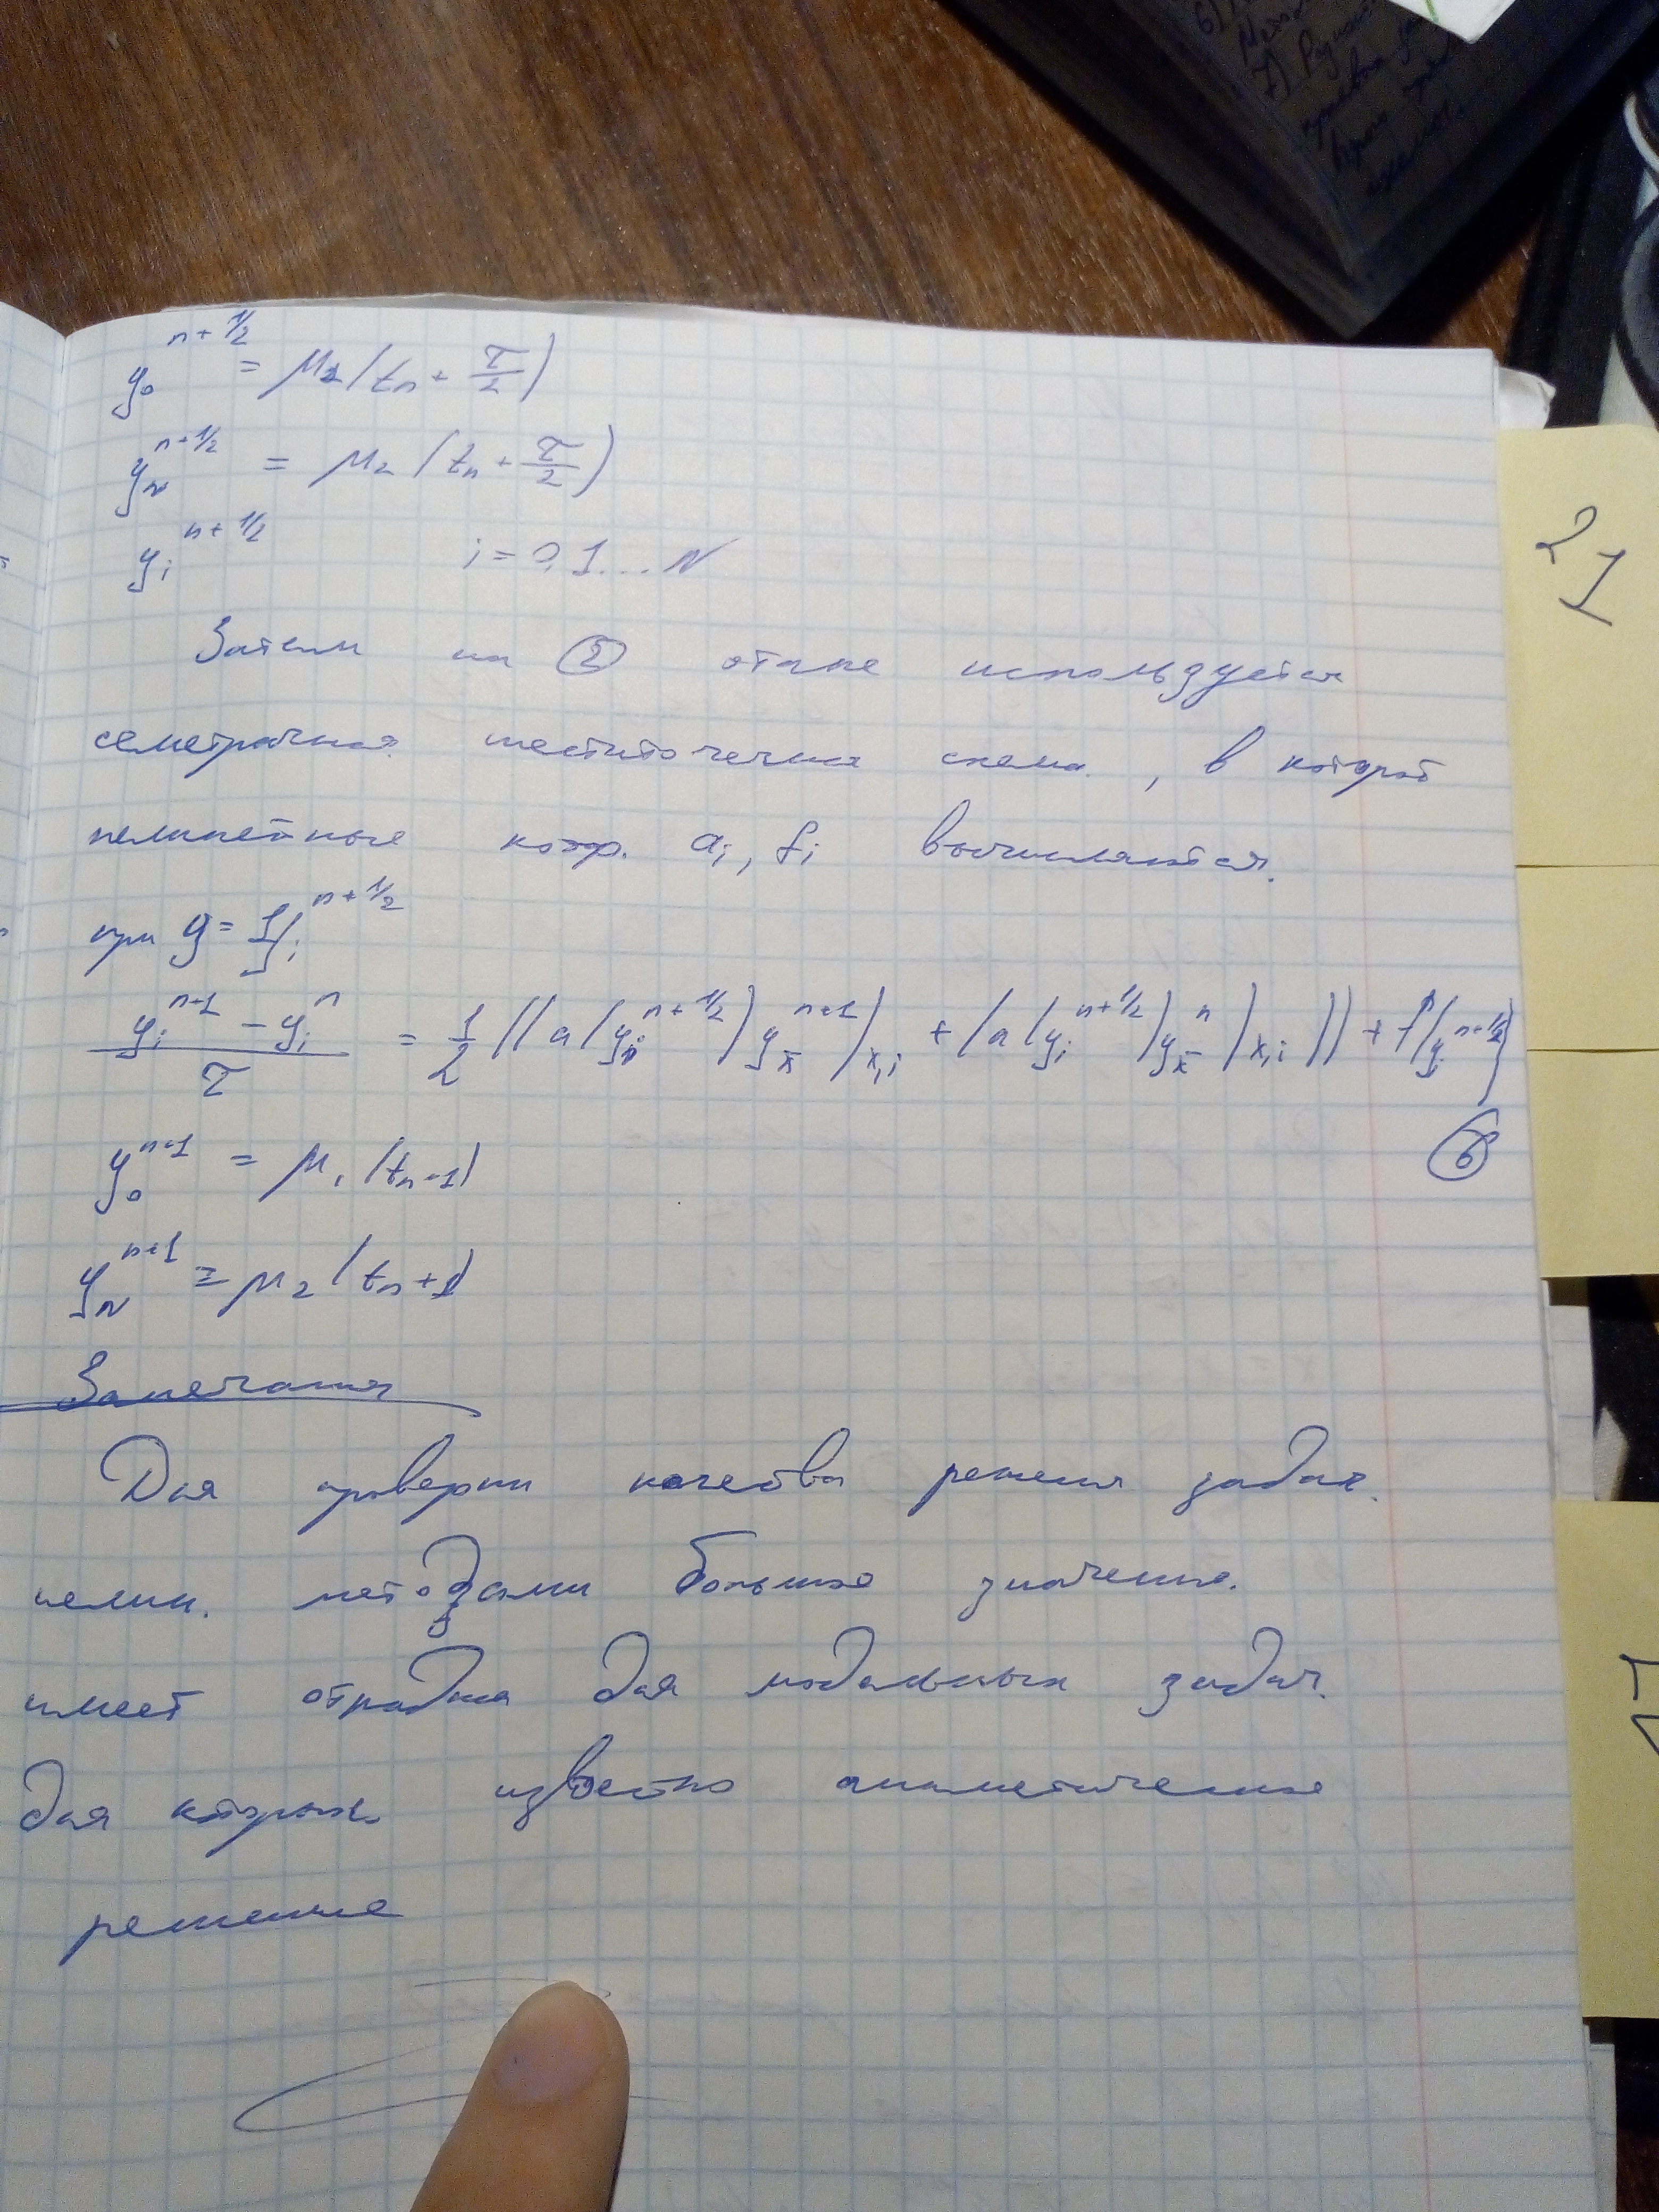 y₀^{n+1/2} = μ₂(tₙ + τ/2)
y_N^{n+1/2} = μ₂(tₙ + τ/2)
yᵢ^{n+1/2} i = 0,1...N
Затем на ② этапе используется
семетричная шеститочечная схема, в которой
нелинейные коэф. aᵢ, fᵢ вычисляются.
при y = yᵢ^{n+1/2}
(yᵢ^{n+1} - yᵢ^n)/τ = 1/2((a(yᵢ^{n+1/2})y_x̄^{n+1})_{x,i} + (a(yᵢ^{n+1/2})y_x̄^n)_{x,i}) + f(yᵢ^{n+1/2})
⑥
y₀^{n+1} = μ₁(tₙ+1)
y_N^{n+1} = μ₂(tₙ+1)
Замечания
Для проверки качества решения задач
нелин. методами большое значение.
имеет отрадна для модельных задач.
для которых известно аналитическое
решение
21